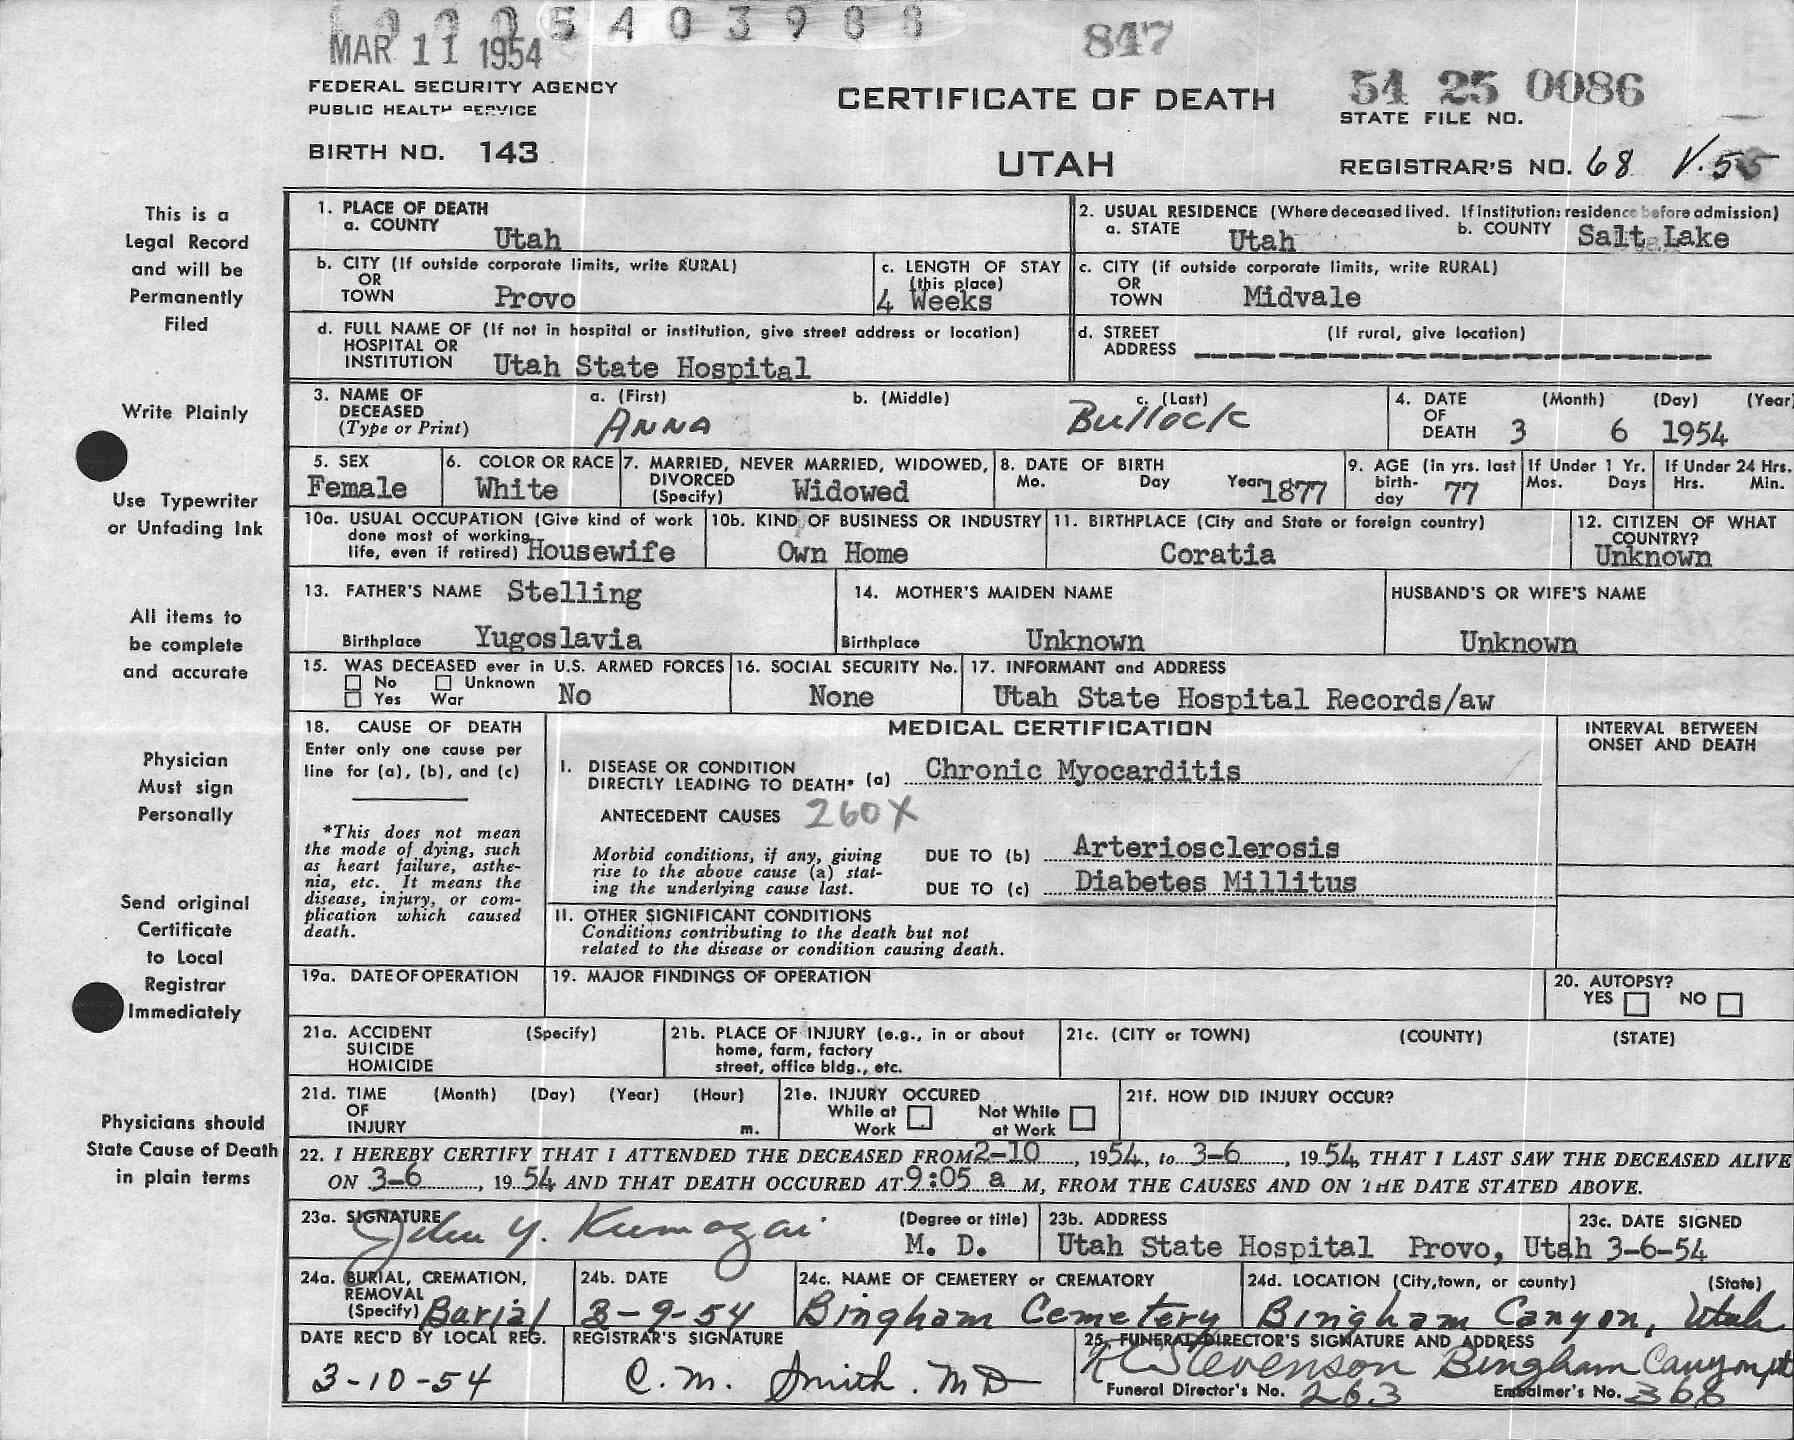 0005403988
MAR 11 1954
847
FEDERAL SECURITY AGENCY
PUBLIC HEALTH SERVICE
CERTIFICATE OF DEATH
54 25 0086
STATE FILE NO.
BIRTH NO. 143
UTAH
REGISTRAR'S NO. 68 V.55
This is a
Legal Record
and will be
Permanently
Filed
Write Plainly
Use Typewriter
or Unfading Ink
All items to
be complete
and accurate
Physician
Must sign
Personally
Send original
Certificate
to Local
Registrar
Immediately
Physicians should
State Cause of Death
in plain terms
1. PLACE OF DEATH
a. COUNTY Utah
2. USUAL RESIDENCE (Where deceased lived. If institution: residence before admission)
a. STATE Utah b. COUNTY Salt Lake
b. CITY (If outside corporate limits, write RURAL)
OR
TOWN Provo
c. LENGTH OF STAY
(this place)
4 Weeks
c. CITY (if outside corporate limits, write RURAL)
OR
TOWN Midvale
d. FULL NAME OF (If not in hospital or institution, give street address or location)
HOSPITAL OR
INSTITUTION Utah State Hospital
d. STREET (If rural, give location)
ADDRESS
3. NAME OF a. (First) b. (Middle) c. (Last)
DECEASED
(Type or Print) ANNA Bullock
4. DATE (Month) (Day) (Year)
OF
DEATH 3 6 1954
5. SEX
Female
6. COLOR OR RACE
White
7. MARRIED, NEVER MARRIED, WIDOWED,
DIVORCED
(Specify) Widowed
8. DATE OF BIRTH
Mo. Day Year 1877
9. AGE (In yrs. last
birth-
day 77
If Under 1 Yr.
Mos. Days
If Under 24 Hrs.
Hrs. Min.
10a. USUAL OCCUPATION (Give kind of work
done most of working
life, even if retired) Housewife
10b. KIND OF BUSINESS OR INDUSTRY
Own Home
11. BIRTHPLACE (City and State or foreign country)
Coratia
12. CITIZEN OF WHAT
COUNTRY?
Unknown
13. FATHER'S NAME Stelling
Birthplace Yugoslavia
14. MOTHER'S MAIDEN NAME
Birthplace Unknown
HUSBAND'S OR WIFE'S NAME
Unknown
15. WAS DECEASED ever in U.S. ARMED FORCES
No Unknown
Yes War No
16. SOCIAL SECURITY No.
None
17. INFORMANT and ADDRESS
Utah State Hospital Records/aw
18. CAUSE OF DEATH
Enter only one cause per
line for (a), (b), and (c)
*This does not mean
the mode of dying, such
as heart failure, asthe-
nia, etc. It means the
disease, injury, or com-
plication which caused
death.
MEDICAL CERTIFICATION
INTERVAL BETWEEN
ONSET AND DEATH
I. DISEASE OR CONDITION
DIRECTLY LEADING TO DEATH* (a) Chronic Myocarditis
ANTECEDENT CAUSES 260X
Morbid conditions, if any, giving
rise to the above cause (a) stat-
ing the underlying cause last.
DUE TO (b) Arteriosclerosis
DUE TO (c) Diabetes Millitus
II. OTHER SIGNIFICANT CONDITIONS
Conditions contributing to the death but not
related to the disease or condition causing death.
19a. DATE OF OPERATION
19. MAJOR FINDINGS OF OPERATION
20. AUTOPSY?
YES NO
21a. ACCIDENT (Specify)
SUICIDE
HOMICIDE
21b. PLACE OF INJURY (e.g., in or about
home, farm, factory
street, office bldg., etc.
21c. (CITY or TOWN) (COUNTY) (STATE)
21d. TIME (Month) (Day) (Year) (Hour)
OF
INJURY m.
21e. INJURY OCCURED
While at Work
Not While at Work
21f. HOW DID INJURY OCCUR?
22. I HEREBY CERTIFY THAT I ATTENDED THE DECEASED FROM 2-10, 1954, to 3-6, 1954, THAT I LAST SAW THE DECEASED ALIVE
ON 3-6, 1954 AND THAT DEATH OCCURED AT 9:05 a M, FROM THE CAUSES AND ON THE DATE STATED ABOVE.
23a. SIGNATURE (Degree or title)
John Y. Kumagai M. D.
23b. ADDRESS
Utah State Hospital Provo, Utah
23c. DATE SIGNED
3-6-54
24a. BURIAL, CREMATION,
REMOVAL
(Specify) Burial
24b. DATE
3-9-54
24c. NAME OF CEMETERY or CREMATORY
Bingham Cemetery
24d. LOCATION (City,town, or county) (State)
Bingham Canyon, Utah
DATE REC'D BY LOCAL REG.
3-10-54
REGISTRAR'S SIGNATURE
C. M. Smith. MD
25. FUNERAL DIRECTOR'S SIGNATURE AND ADDRESS
Stevenson Bingham Canyon Ut
Funeral Director's No. 263 Embalmer's No. 368